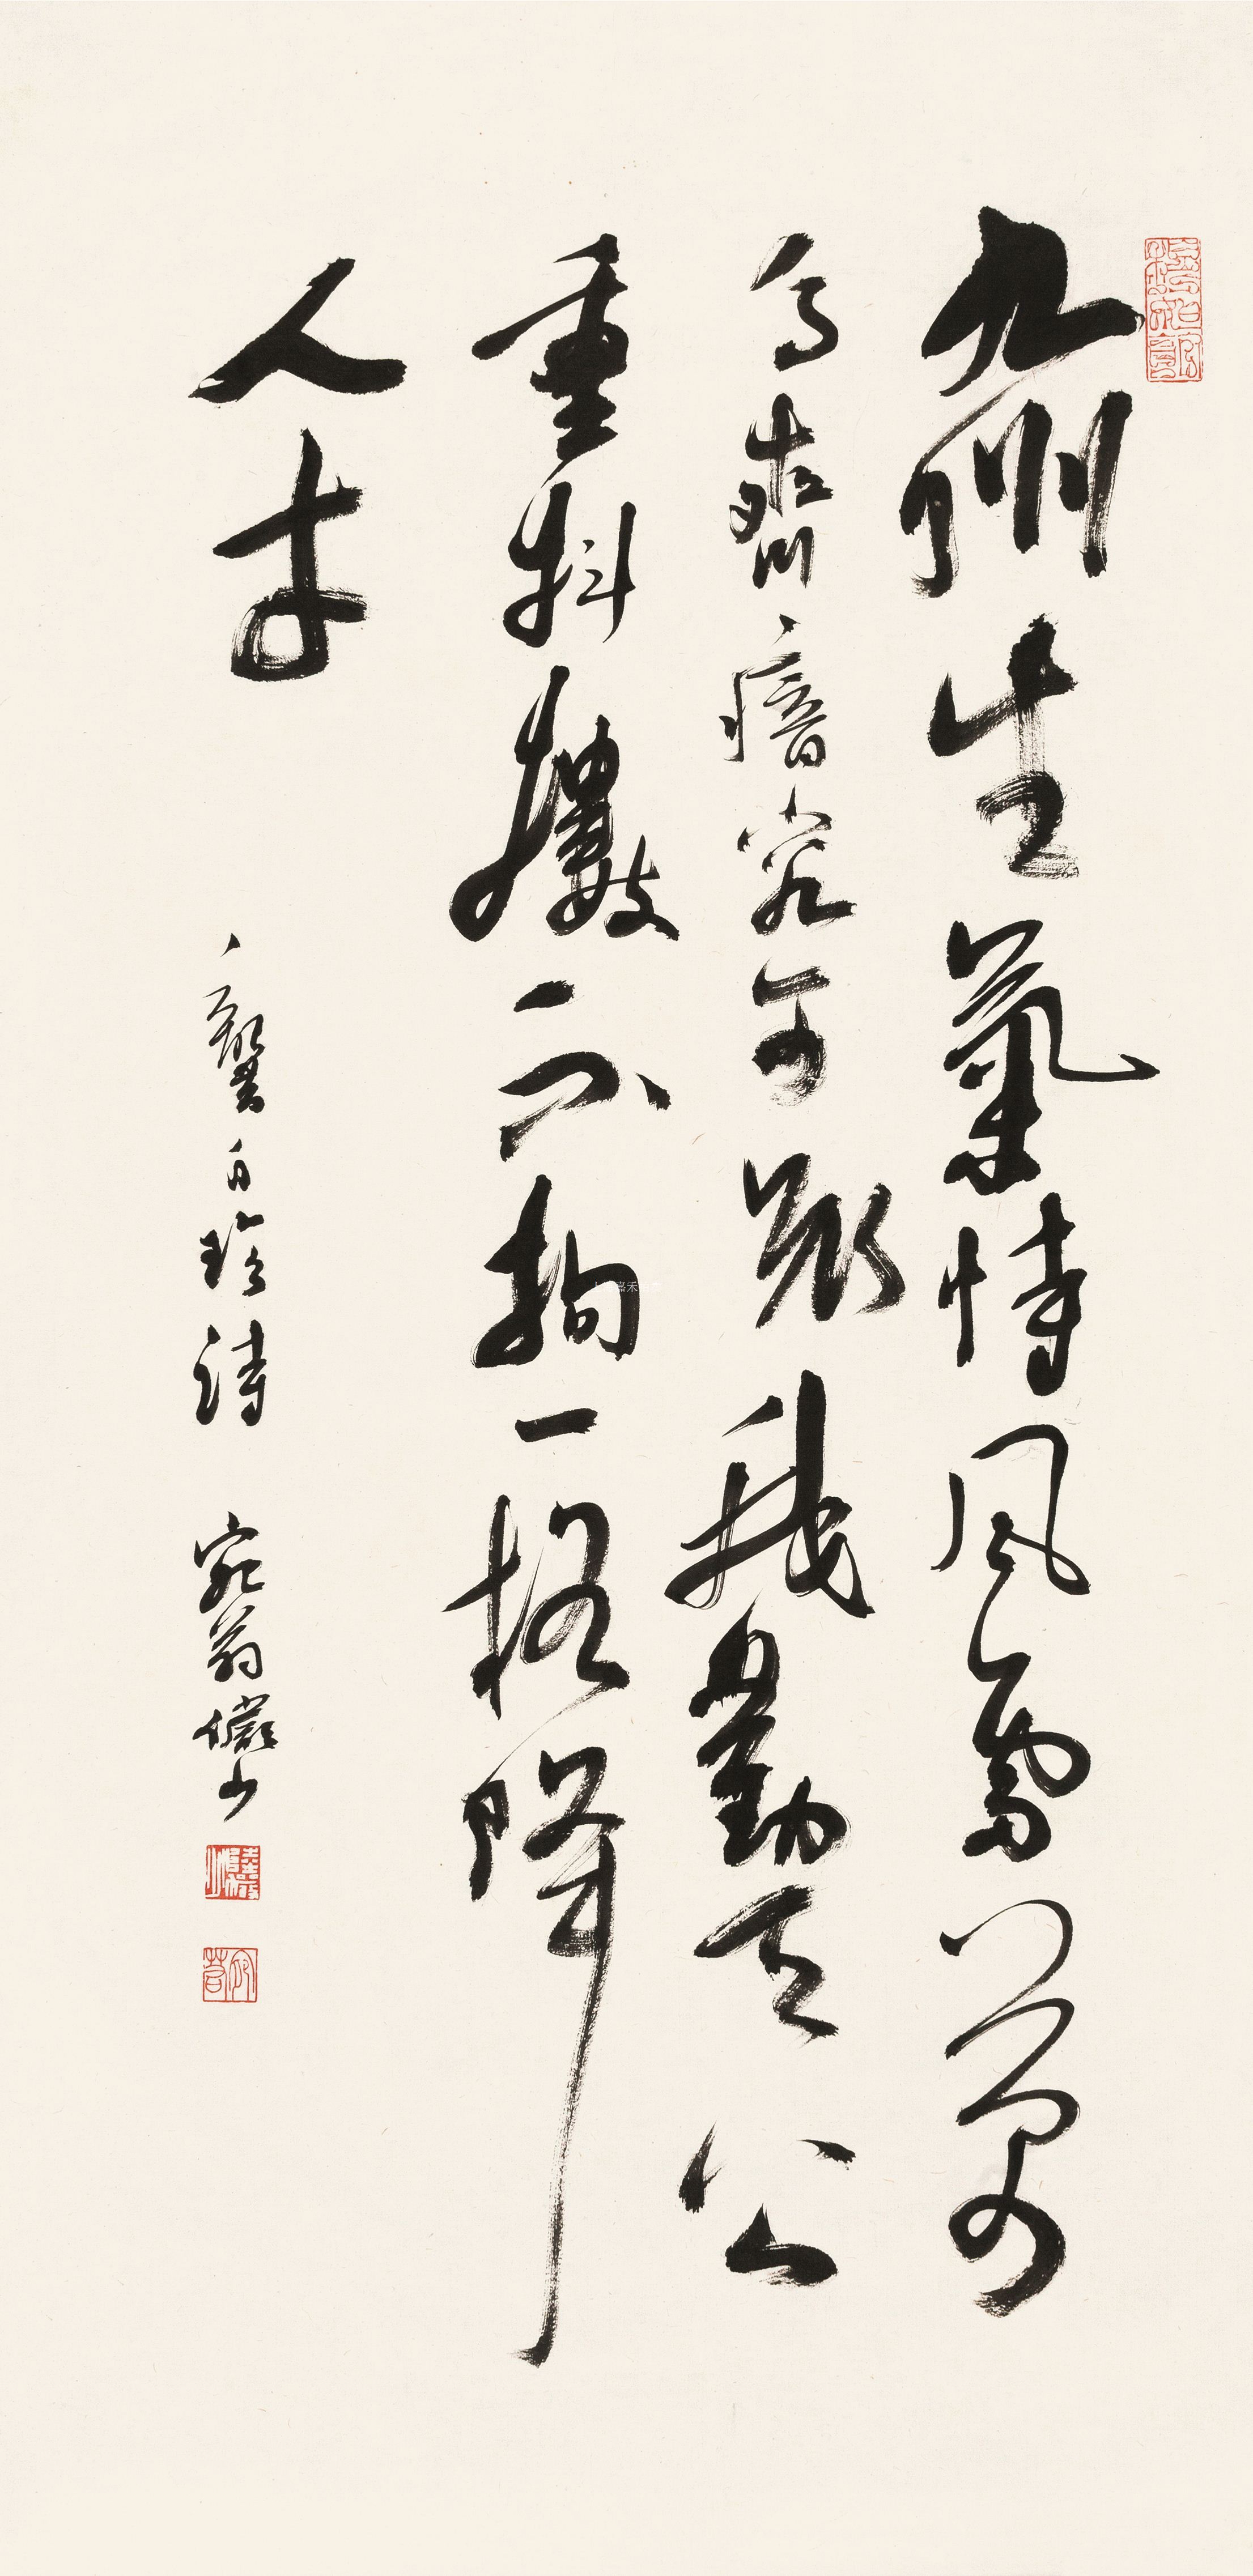 九州生氣恃風雷萬
馬齊瘖究可我勸天公
重抖擻不拘一格降
人才
龔自珍詩 宛翁儼少
陸儼少
宛若